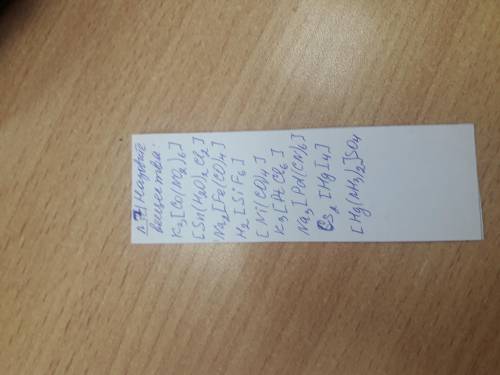 1.7) Назовите
вещества:
K3[Co(NO2)6]
[Sn(H2O)2Cl2]
Na2[Fe(CO)4]
H2[SiF6]
[Ni(CO)4]
K3[AlCl6]
Na3[Pd(CN)6]
Cs2[HgI4]
[Hg(NH3)2]SO4